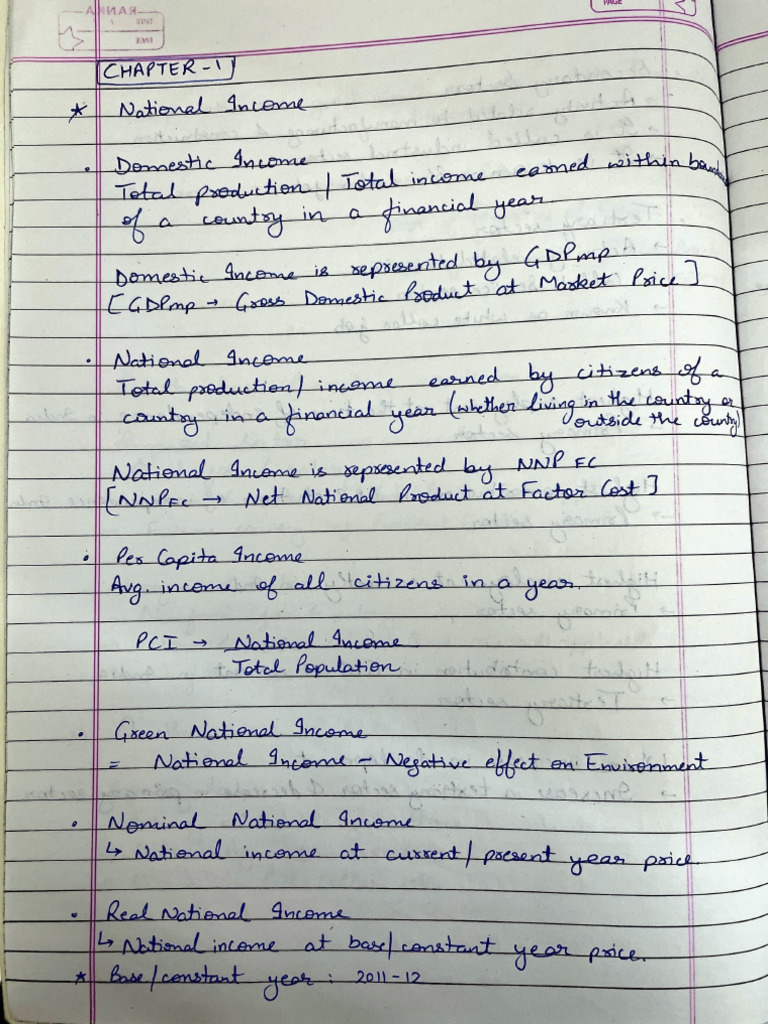 PAGE
CHAPTER-1
* National Income
• Domestic Income
Total production / Total income earned within
of a country in a financial year.
Domestic Income is represented by GDPmp
[GDPmp → Gross Domestic Product at Market Price]
• National Income
Total production/ income earned by citizens of a
country in a financial year (whether living in the country or
outside the country)
National Income is represented by NNP FC
[NNPFC → Net National Product at Factor Cost]
• Per Capita Income
Avg. income of all citizens in a year.
PCI → National Income
Total Population
• Green National Income
= National Income - Negative effect on Environment
• Nominal National Income
↳ National income at current/present year price.
• Real National Income
↳ National income at base/constant year price.
* Base/constant year : 2011-12